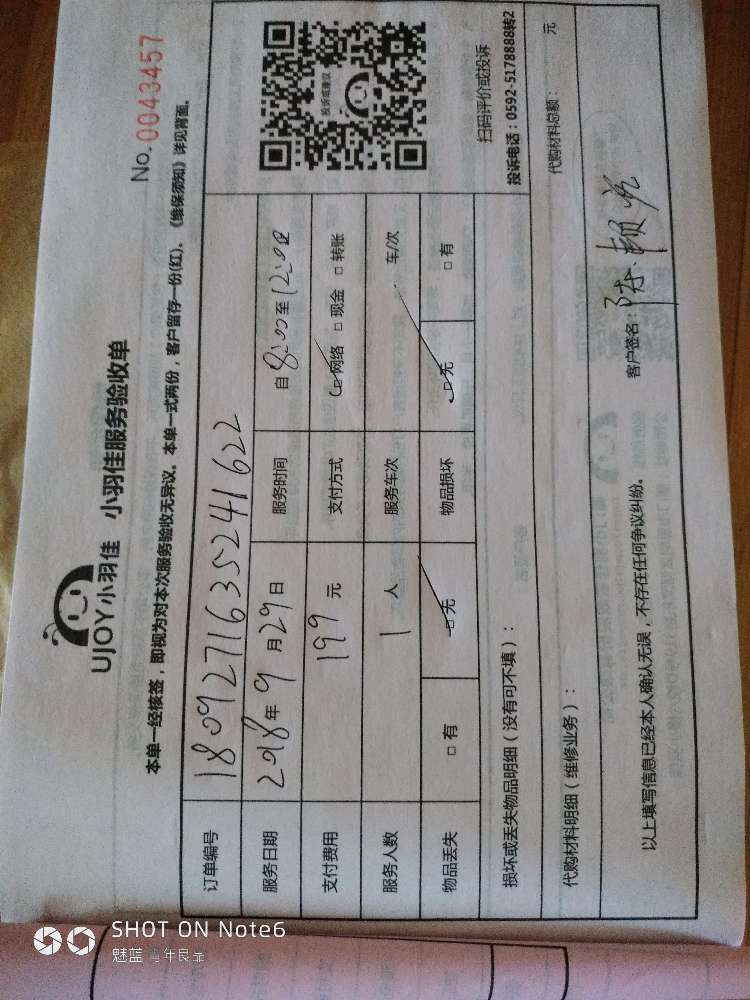 UJOY小羽佳 小羽佳服务验收单
No. 0043457
本单一经核签，即视为对本次服务验收无异议。本单一式两份，客户留存一份(红)，《维保须知》详见背面。
订单编号 180927163524 1622
服务日期 2018年9月29日 服务时间 自8:00至12:00
支付费用 199元 支付方式 □网络 □现金 □转账
服务人数 1人 服务车次 车/次
物品丢失 □有 □无 物品损坏 □无 □有
投诉或建议
扫码评价或投诉
投诉电话：0592-5178888转2
损坏或丢失物品明细（没有可不填）：
代购材料明细（维修业务）： 代购材料总额： 元
以上填写信息已经本人确认无误，不存在任何争议纠纷。 客户签名：
SHOT ON Note6
魅蓝 青年良品